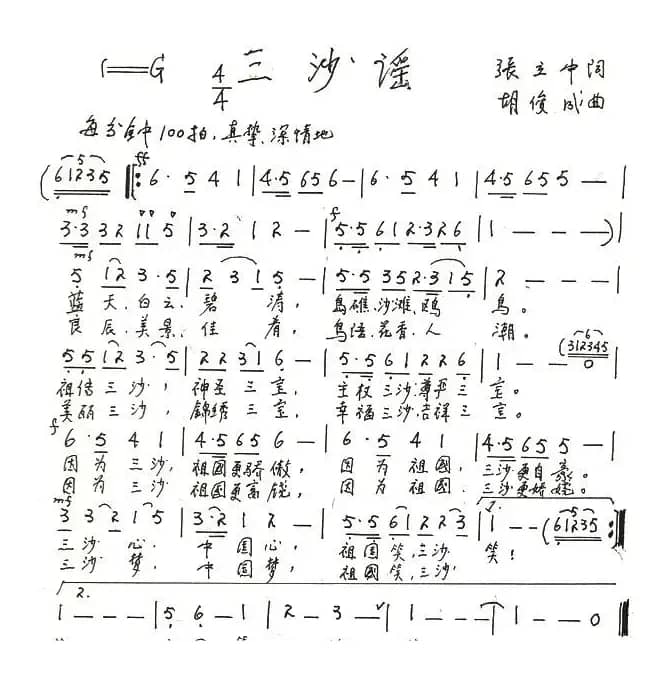 1=G 4/4 三沙谣 張立中词
胡俊成曲
每分钟100拍,真挚、深情地
(61235 ff ‖: 6· 5 4 1 | 4·5 656 – | 6· 5 4 1 | 4·5 65 5 – |
mf 3·3 32 11 5 | 3·2 1 2 – | f 5·5 61 2·32 6 | 1 – – ) |
mf 5 12 3·5 | 2 31 5 – | 5·5 352·31 5 | 2 – –
蓝天、白云、碧涛, 鸟礁、沙滩、鸥鸟。
良辰、美景、佳肴, 鸟语、花香、人潮。
55 12 3 5 | 22 31 6 – | 5·5 61 22 6 | 1 – – (312345 0
祖传三沙, 神圣三宝, 主权三沙,尊严三宝。
美丽三沙, 錦绣三宝, 幸福三沙,吉祥三宝。
f 6·5 4 1 | 4·5 65 6 – | 6·5 4 1 | 4·5 65 5 – |
因为三沙, 祖国更骄傲, 因为祖國, 三沙更自豪。
因为三沙 祖国更富饶, 因为祖國. 三沙更娇娆。
mf 3 3 2 1 5 | 3·2 1 2 – | 5·5 61 22 3 | 1. 1 – – (61235 :‖
三沙心, 中国心, 祖国笑,三沙笑!
三沙梦, 中国梦, 祖國笑,三沙
2. 1 – – – | 5 6 – 1 | 2 – 3 – | 1 – – – | 1 – – 0 ‖